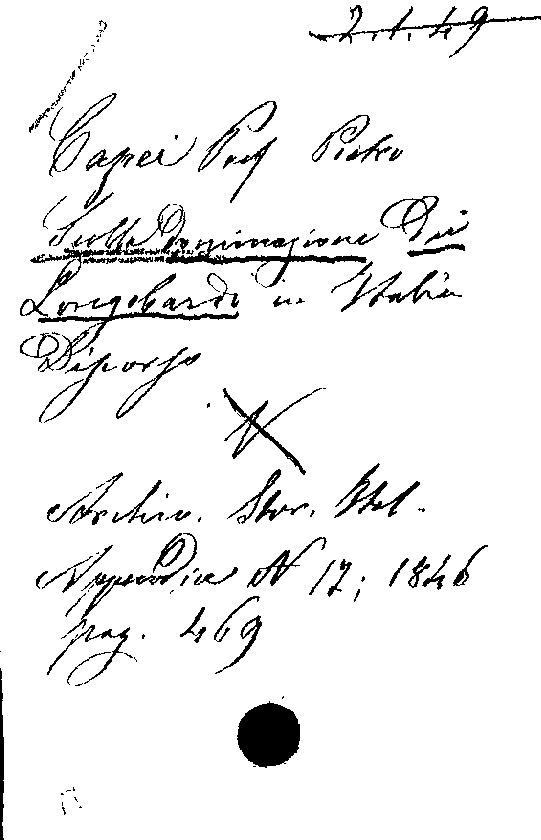 2.1.49
Capei Prof Pietro
Sulla Dominazione Dei
Longobardi in Italia
Discorso
V
Archiv. Stor. Ital.
Appendice N 17; 1846
pag. 469